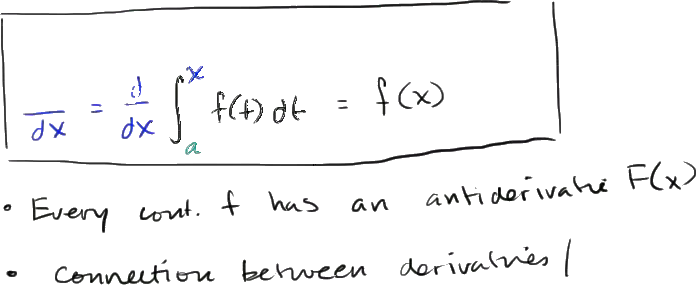 /dx = d/dx ∫_a^x f(t) dt = f(x)
• Every cont. f has an antiderivative F(x)
• connection between derivatives /